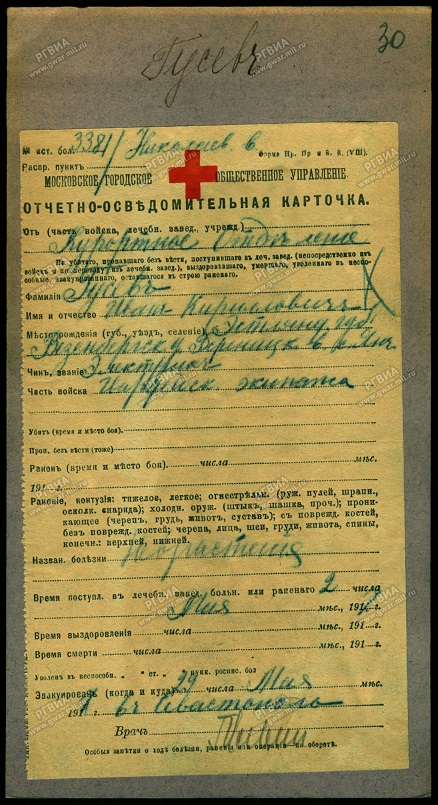 30
Гусевъ
№ ист. бол. 3381/ Николаев. в. Форма Пр. Пр и В. В. (VIII).
Распр. пунктъ
МОСКОВСКОЕ ГОРОДСКОЕ ОБЩЕСТВЕННОЕ УПРАВЛЕНІЕ.
ОТЧЕТНО-ОСВѢДОМИТЕЛЬНАЯ КАРТОЧКА.
Отъ (часть войска, лечебн. завед., учрежд.)
Курортное Отдѣленіе
На убитаго, пропавшаго безъ вѣсти, поступившаго въ леч. завед. (непосредственно изъ
войскъ и по переводу изъ лечебн. завед.), выздоровѣвшаго, умершаго, уволеннаго въ неспо-
собные, эвакуированнаго, оставшагося въ строю раненаго.
Фамилія Гусевъ
Имя и отчество Иван Кирилловичъ
Мѣсторожденія (губ., уѣздъ, селеніе) Эстлянд. губ
Везенбергск у
Чинъ, званіе Электрикъ
Часть войска экипажа
Убитъ (время и мѣсто боя)
Проп. безъ вѣсти (тоже)
Раненъ (время и мѣсто боя) числа мѣс.
191 г.
Раненіе, контузія: тяжелое, легкое; огнестрѣльн. (руж. пулей, шрапн.,
осколк. снаряда); холодн. оруж. (штыкъ, шашка, проч.); прони-
кающее (черепъ, грудь, животъ, суставъ); съ поврежд. костей,
безъ поврежд. костей; черепа, лица, шеи, груди, живота, спины,
конечн.: верхней, нижней.
Назван. болѣзни
Время поступл. въ лечебн. завед. больн. или раненаго 2 числа
Мая мѣс., 191 г.
Время выздоровленія числа мѣс., 191 г.
Время смерти числа мѣс., 191 г.
Уволенъ въ неспособн. " " ст. роспис. бол
Эвакуированъ (когда и куда) числа Мая мѣс.
191 г. въ Севастополь
Врачъ
Особыя замѣтки о ходѣ болѣзни, раненія или операціи—на оборотѣ.
РГВИА
www.gwar.mil.ru